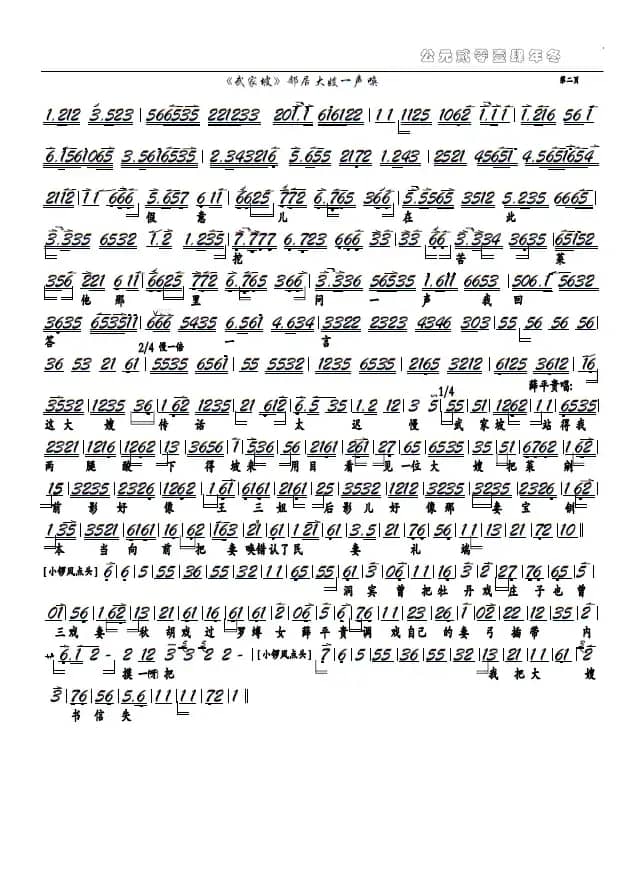 公元贰零壹肆年冬
《武家坡》邻居大嫂一声唤 第二页
1.212 3.523 | 566535 221233 201.1 616122 | 11 1125 1062 1111 | 1.216 561
6.1561065 3.5616535 | 2.343216 3.655 2172 1.243 | 2521 45651 4.5651654
2112 11 666 5.657 611 | 6625 772 6.765 366 | 5.5565 3512 5.235 6665
假 意 儿 在 此
3.335 6532 1.2 1.235 | 7.777 6.723 666 33 | 33 66 3.334 3635 | 65152
挖 苦 菜
356 221 611 | 6625 772 6.765 366 | 3.336 56535 1.611 6653 | 506.1 5632
他 那 里 问 一 声 我 回
3635 653511 | 666 5435 6.561 4.634 | 3322 2323 4346 303 | 55 56 56 56
答 一 言
2/4 慢一倍
36 53 21 61 | 5535 6561 | 55 5532 | 1235 6535 | 2165 3212 | 6125 3612 | 16
薛平贵唱:
1/4
3532 | 1235 36 | 1 62 1235 | 21 612 | 6.5 35 | 1.2 12 | 3 5 | 55 | 51 | 1262 | 11 | 6535
这大嫂 传话 太 迟 慢 武家坡 站得我
2321 | 1216 | 1262 | 13 | 3656 | 1 | 35 | 56 | 2161 | 261 | 27 | 65 | 35 | 6535 | 35 | 51 | 6762 | 162
两腿酸 下得坡来用目看见一位大嫂把菜剜
15 | 3235 | 2326 | 1262 | 161 | 6161 | 2161 | 25 | 3532 | 1212 | 3235 | 3235 | 2326 | 162
前影好像 王三姐 后影儿好像那妻宝钏
135 | 3521 | 6161 | 16 | 62 | 163 | 21 | 61 | 21 | 3.5 | 21 | 76 | 56 | 11 | 13 | 21 | 72 | 10 ‖
本当向前把妻唤错认了民妻礼端
[小锣凤点头] 6 | 6 | 5 | 55 | 36 | 55 | 32 | 11 | 65 | 55 | 61 | 3 | 06 | 11 | 3 | 2 | 27 | 76 | 65 | 5
洞宾曾把牡丹戏庄子也曾
01 | 56 | 1 | 62 | 13 | 21 | 61 | 16 | 21 | 61 | 61 | 2 | 03 | 6 | 76 | 11 | 23 | 1 | 02 | 22 | 12 | 35
三戏妻 秋胡戏过罗缚女薛平贵调戏自己的妻弓插带内
6.1 2 - 2 12 3 3 2 2 - | [小锣凤点头] 7 | 6 | 5 | 55 | 36 | 55 | 32 | 13 | 21 | 11 | 61 | 2
摸一呀把 我把大嫂
3 | 76 | 56 | 5.6 | 11 | 72 | 1 | 1 ‖
书信失